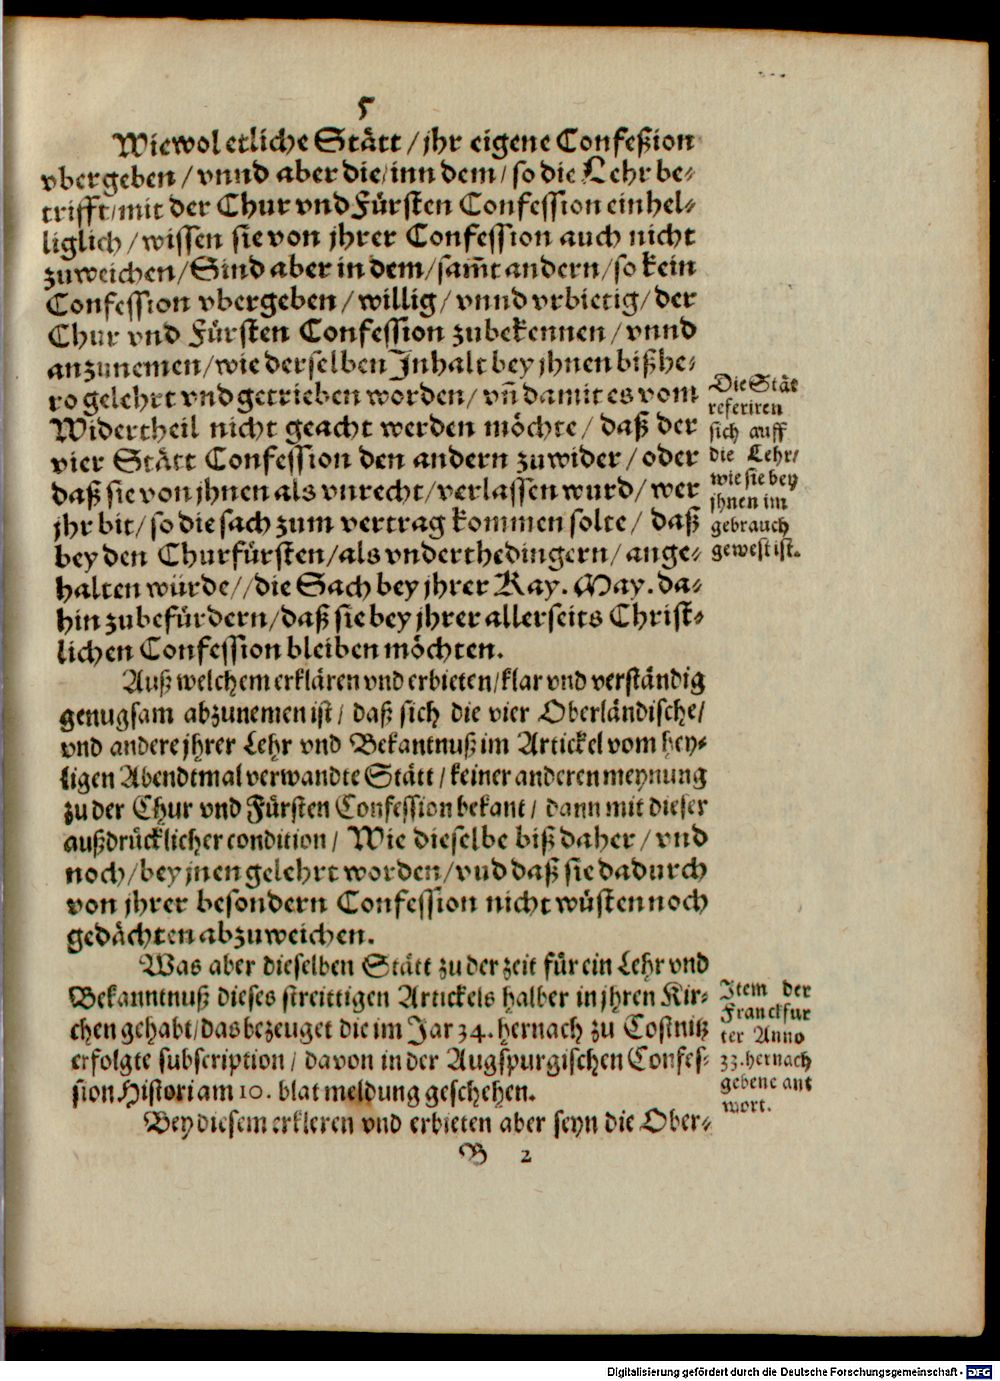 5
Wiewol etliche Stätt / jhr eigene Confeßion
vbergeben / vnnd aber die / inn dem / so die Lehr be-
trifft / mit der Chur vnd Fürsten Confession einhel-
liglich / wissen sie von jhrer Confession auch nicht
zuweichen / Sind aber in dem / sam̃t andern / so kein
Confession vbergeben / willig / vnnd vrbietig / der
Chur vnd Fürsten Confession zubekennen / vnnd
anzunemen / wie derselben Inhalt bey jhnen bißhe-
ro gelehrt vnd getrieben worden / vñ damit es vom
Widertheil nicht geacht werden möchte / daß der
vier Stätt Confession den andern zuwider / oder
daß sie von jhnen als vnrecht / verlassen wurd / wer
jhr bit / so die sach zum vertrag kommen solte / daß
bey den Churfürsten / als vnderthedingern / ange-
halten würde / / die Sach bey jhrer Kay. May. da-
hin zubefürdern / daß sie bey jhrer allerseits Christ-
lichen Confession bleiben möchten.
Die Stät
referiren
sich auff
die Lehr /
wie sie bey
jhnen im
gebrauch
gewest ist.
Auß welchem erklären vnd erbieten / klar vnd verständig
genugsam abzunemen ist / daß sich die vier Oberländische /
vnd andere jhrer Lehr vnd Bekantnuß im Artickel vom hey-
ligen Abendtmal verwandte Stätt / keiner anderen meynung
zu der Chur vnd Fürsten Confession bekant / dann mit dieser
außdrücklicher condition / Wie dieselbe biß daher / vnd
noch / bey jnen gelehrt worden / vnd daß sie dadurch
von jhrer besondern Confession nicht wüsten noch
gedächten abzuweichen.
Was aber dieselben Stätt zu der zeit für ein Lehr vnd
Bekanntnuß dieses streittigen Artickels halber in jhren Kir-
chen gehabt / das bezeuget die im Jar 34. hernach zu Costnitz
erfolgte subscription / davon in der Augspurgischen Confes-
sion Histori am 10. blat meldung geschehen.
Item der
Franckfur
ter Anno
33. hernach
gebene ant
wort.
Bey diesem erkleren vnd erbieten aber seyn die Ober-
B 2
Digitalisierung gefördert durch die Deutsche Forschungsgemeinschaft - DFG